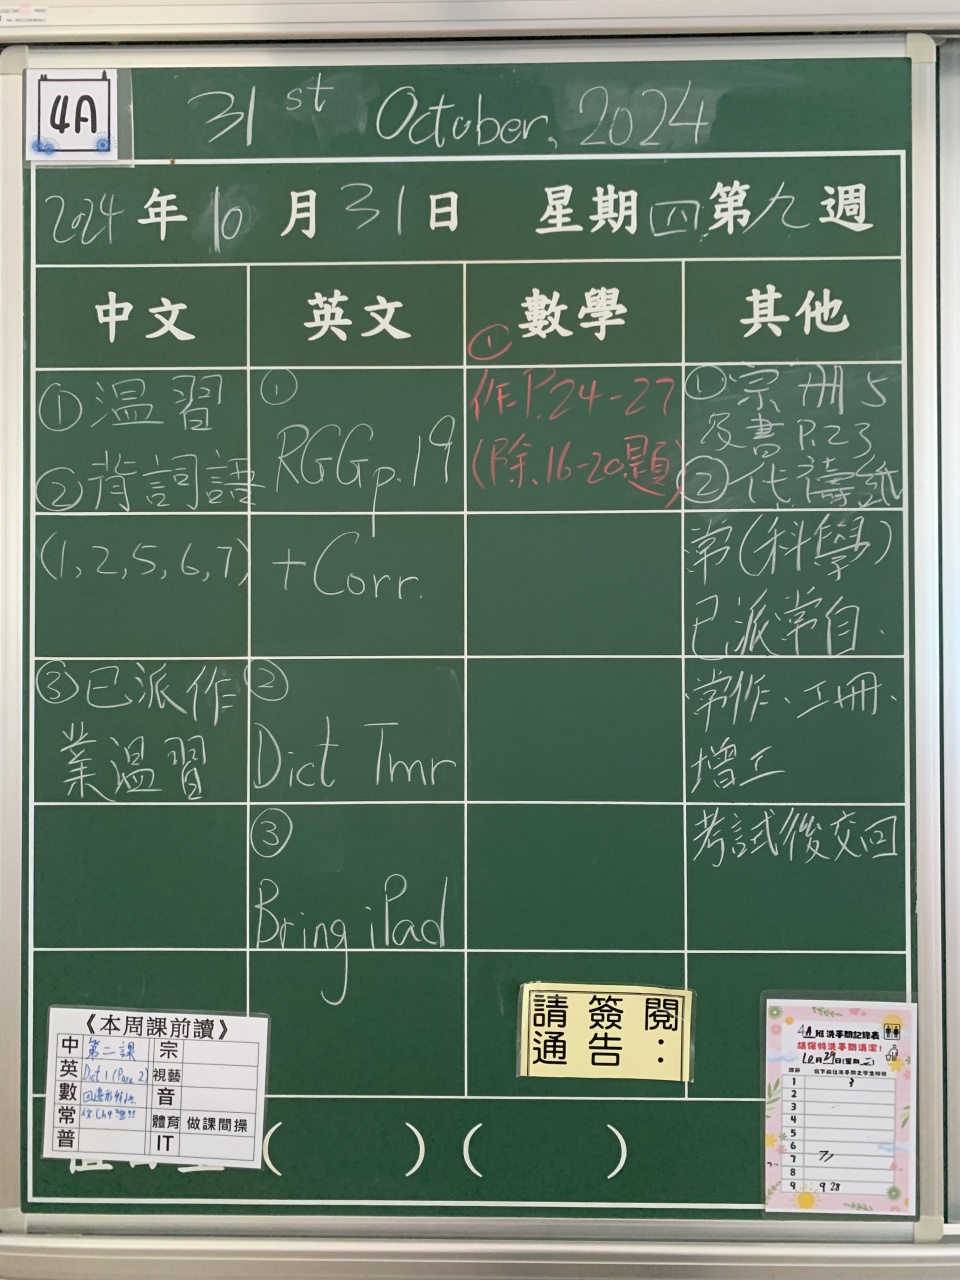 4A
31st October, 2024
2024年10月31日 星期四第九週
中文 英文 數學 其他
①溫習
②背詞語
(1,2,5,6,7)
③已派作
業溫習
①
RGG p.19
+Corr.
②
Dict Tmr
③
Bring iPad
①
作P.24-27
(除16-20題)
①宗冊5
及書P.23
②代禱紙
常(科學)
已派常自、
常作、工冊、
增工
考試後交回
《本周課前讀》
中 第二課 宗
英 Dict 1 (Para. 2) 視藝
數 四邊形特性 音
常 體育 做課間操
普 IT
( ) ( )
請簽閱
通告：
4A班洗手間記錄表
請保持洗手間清潔！
10月29日(星期二)
1 3
2
3
4
5
6
7
8
9 9 28